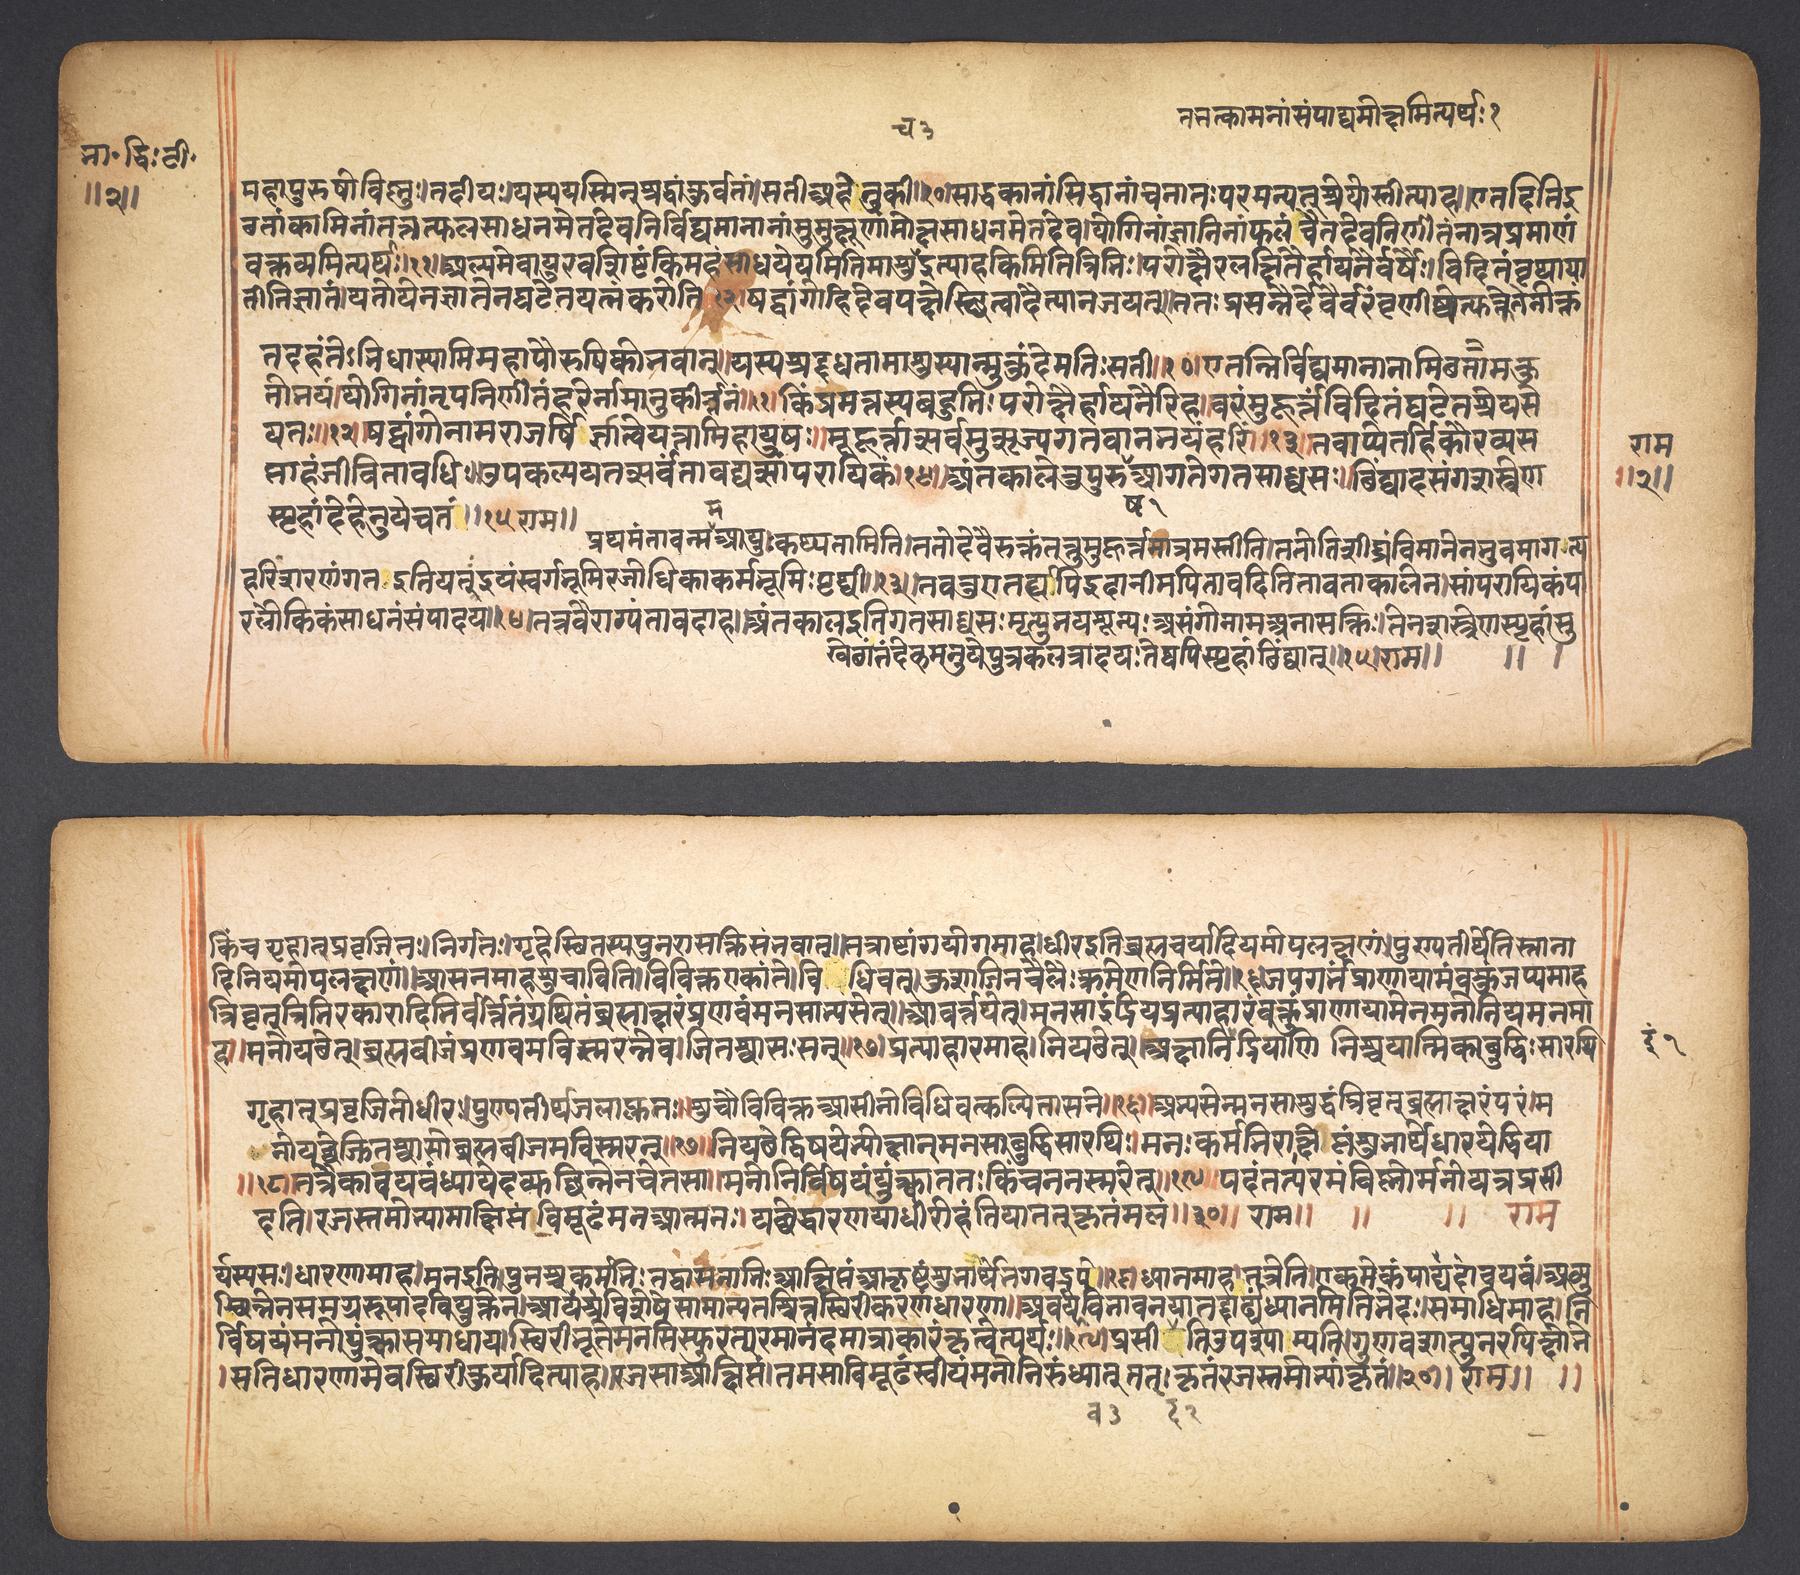 ततत्कामनांसंपाद्यमोक्षमित्यर्थः१
च३
भा॰द्वि॰टी॰
॥२॥
महापुरुषोविस्नुः।तदीयः।यस्ययस्मिन्श्रद्दांकुर्वतां।सतीअहैतुकी।१०।साद्वकानांसिद्वानांचनातःपरमन्यत्श्रेयोस्तीत्याह।।एतदितिइ
छतांकामिनांतत्तत्फलसाधनमेतदेवनिर्विद्यमानानांमुमुक्षूणांमोक्षसाधनमेतदेव।योगिनांज्ञानिनांफलंचैतदेवनिर्णीतंनात्रप्रमाणं
वक्तव्यमित्यर्थः।११।।अल्पमेवायुरवशिष्टंकिमहंसाधयेयमितिमास्तुइत्याहकिमितित्रिभिः।परोक्षैरलक्षितैर्हायनैर्वर्षैः।विदितंवृथाया
तीतिज्ञातं।यतोयेनज्ञातेनघटेतयत्नंकरोति १२।षट्वांगोहिदेवपक्षेस्छित्वादैत्यानजयत्।ततःप्रसन्नैर्देवैर्वरंवृणीष्वेत्यक्तेतेनोक्तं
तदहंतेऽभिधास्यामिमहापौरुषिकोभवान्।।यस्यश्रद्दधतामाशुस्यान्मुकुंदेमतिःसती।।१०।एतन्निर्विद्यमानानामिछतामकु
तोभयं।योगिनांनृपनिर्णीतंहरेर्नामानुकीर्त्तनं।।११।किंप्रमत्तस्यबहुभिः।परोक्षैर्हायनैरिह।वरंमुहूर्त्तंविदितंघटेतश्रेयसे
यतः।।१२।।षट्वांगोनामराजर्षि र्ज्ञात्वेयत्तामिहायुषः।।मूहूर्त्तात्सर्वमुत्सृज्यगतवानभयंहरिं।।१३।तवाप्येतर्हिकौरव्यस
प्ताहंजीवितावधिः।।उपकल्पयतत्सर्वंतावद्यत्सांपरायिकं।१४।अंतकालेतुपुरुषआगतेगतसाध्वसः।।छिंद्यादसंगशस्त्रेण
राम
॥२॥
स्पृहांदेहेनुयेचतं ।।१५राम।।
ष१
प्रथमंतावन्ममआयुःकथ्यतामिति।ततोदेवैरुक्तंतत्तुमुहूर्त्तमात्रमस्तीति।ततोतिशीघ्रंविमानेनभुवमागत्य
हरिंशरणंगत इतियत्इयंस्वर्गभूमिरजोधिकाकर्मभूमिःपृथ्वी।१३।तवतुएतर्ह्यपिइदानीमपितावदितितावताकालेन।सांपरायिकंपा
रलौकिकंसाधनंसंपादय।।१४।तत्रवैराग्यंतावदाह।।अंतकालइतिगतसाध्वसःमृत्युभयशून्यःअसंगोनामअनासक्तिः।तेनशस्त्रेणस्पृहांसु
खेछांतंदेहमनुयेपुत्रकलत्रादयःतेष्वपिस्पृहांछिंद्यात्।।१५।राम।। ।। ।
किंचगृहात्प्रवृजितः।निर्गतः।गृहेस्थितस्यपुनरासक्तिसंभवात्।।तत्राष्टांगयोगमाह।धीरइतिब्रह्मचर्यादियमोपलक्षणं।पुण्यतीर्थेतिस्नाना
दिनियमोपलक्षणं।।आसनमाहशुचाविति।विविक्तएकांते।वि धिवत्।कुशाजिनचैलैःक्रमेणनिर्मिते।१६।जपगर्भप्राणायामंवक्तुंजप्यमाह
त्रिवृत्त्रिभिरकारादिभिर्वर्त्तितंग्रथितंब्रह्माक्षरंप्रणवंमनसाभ्यसेत्।।आवर्त्तयेत्।मनसाइंद्रियप्रत्याहारंवक्तुंप्राणायामेनमनोनियमनमा
ह।।मनोयछेत्।ब्रह्मबीजंप्रणवमविस्मरन्नेव।जितश्वासःसन्।।१७।प्रत्याहारमाह।नियछेत्।।अक्षानिंद्रियाणि निश्चयात्मिकाबुद्धिःसारथि
गृहात्प्रवृजितोधीरः।पुण्यतीर्थजलाप्लुतः।।शुचौविविक्तआसीनोविधिवत्कल्पितासने।।१६।।अभ्यसेन्मनसाशुद्वंत्रिवृत्ब्रह्माक्षरंपरं।म
नोयछेज्जितश्वासोब्रह्मबीजमविस्मरन्।।१७।।नियछेद्विषयेभ्योक्षान्मनसाबुद्धिसारथिः।मनःकर्मभिराक्षिप्तंशुभार्थेधारयेद्धिया
।।१८।तत्रैकावयवंध्यायेदव्युछिन्नेनचेतसा।।मनोनिर्विषयंयुंक्त्वाततःकिंचननस्मरेत्।।१९।पदंतत्परमंविष्णोर्मनोयत्रप्रसी
दति।रजस्तमोभ्यामाक्षिप्तं विमूढंमनआत्मनः।यछेद्वारणयाधीरोहंतियातत्कृतंमलं।।२०।। राम।। ।। ।। राम
र्यस्यसः।धारणामाह।मनइति।पुनश्चकर्मभिःतद्वासनाभिःआक्षिप्तंआकृष्टंशुभार्थेभगवद्रूपे।।१८।ध्यानमाह।तत्रेति।एकमेकंपादाद्यवयवं।अव्यु
छिन्नेनसमग्ररूपादवियुक्तेन।आर्यस्युविशेषेसामान्यतश्चित्तस्थिरीकरणंधारणा।।अवयवविभावनयातद्दार्ढ्यंध्यानमितिभेदः।समाधिमाह।नि
र्विषयंमनोयुंक्त्वासमाधाय।स्थिरीभूतेमनसिस्फुरत्परमानंदमात्राकारंकृत्वेत्यर्थः।।१९।प्रसी तिउपशाम्यति।गुणवशात्पुनरपिक्षोभे
।सतिधारणामेवस्थिरीकुर्यादित्याह।।रजसाआक्षिप्तं।तमसाविमूढंस्वीयंमनोनिरुंध्यात्तत्।कृतंरजस्तमोभ्यांकृतं।।२०।। राम।। ।।
व३ द२